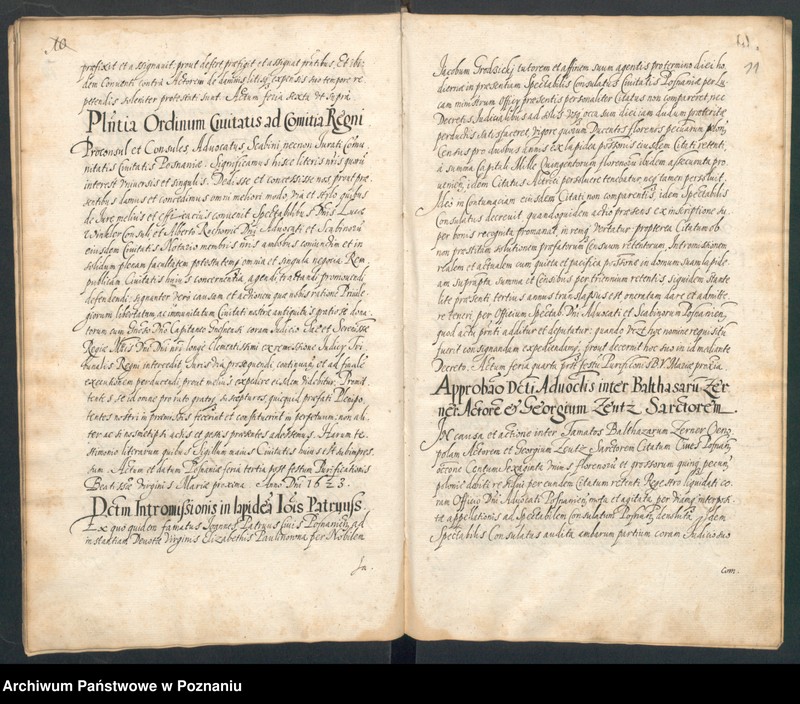 10
prefixit et assignavit, prout desert præfigit et assignat pñtibus. Et ibi
dem Conventi contra Actorem de damnis litis et expensis suo tempore re
petendis solenniter protestati sunt. Actum feria sexta ut supra
Plñtia Ordinum Ciuitatis ad Comitia Regni
Proconsul et Consules, Advocatus Scabini necnon Jurati Com̃u
nitatis Ciuitatis Posnaniæ. Significamus hisce literis nr̃is quorũ
interest vniuersis et singulis. Dedisse et concessisse nos, prout præ
sentibus damus et concedimus om̃i meliori modo, via et stylo quibus
de Jure melius et efficacius conuenit Spectabilibus Dñis Lucæ
Winkler Consuli et Alberto Rochowic Dñi Advocati et Scabinorũ
eiusdem Ciuitatis Notario membris nr̃is ambobus coniunctim et in
solidum plenam facultatem potestatemq omnia et singula negotia Rem
publicam Ciuitatis huius concernentia, agendi tractandi promouendi
defendendi: signanter vero causam et actionem quæ nobis ratione Priuile
giorum libertatum ac immunitatum Ciuitati nostræ antiquitus
torum cum Gñoso Dño Capitaneo coram Judicio Sac. et Sereniss̃æ
Regiæ Mttis Dñi Dñi nr̃i longe Clementissimi ex remissione Judicij Tri
bunalis Regni intercedit Juris via prosequendi, continuandi et ad finalem
executionem perducendi, prout melius expedire eisdem videbitur. Promit
tentes se id omne pro rato grato suscepturos, quicquid præfati Plenipo
tentes nostri in præmissis fecerint et constituerint in perpetuum: non ali
ter ac si nosmetipsi actis et gestis præsentes adessemus. Harum te
stimonio literarum quibus Sigillum maius Ciuitatis huius est subimpres
sum. Actum et datum Posnaniæ feria tertia post festum Purificationis
Beatissæ Virginis Mariæ proxima Anno Dñi 1623.
Dctm̃ Intromissionis in lapideã Joĩs Patruuss.
Ex quo quidem famatus Joannes Patruus Ciuis Posnanieñ ad
instantiam Deuotæ Virginis Elizabethis Paulinowna per Nobilem
Ja.
11
Jacobum Grodzickj tutorem et affinem suum agentis pro termino diei ho
dierna in præsentiam Spectabilis Consulatus Ciuitatis Posnaniæ per Lu
cam ministerum Officij præsentis personaliter Citatus non comparet nec
Decretis Judicialibus ad
perductis satisfaceret, vigore quorum Ducentos florenos pecuniarum polon,
Census pro duobus annis ex lapidea per ipsius eiusdem Citati retenti,
a summa Capitali Mille Quingentorum florenorum ibidem assecurata pro
uenieñ, idem Citatus Actrici persoluere tenebatur, nec tamen persoluit.
Ideo in contumaciam eiusdem Citati non comparentis, idem Spectabilis
Consulatus decreuit, quandoquidem actio præsens ex inscriptione su
per bonis recognita promanat, in remq vertatur: propterea Citatum ob
non præstitam solutionem præfatorum Censuum retentorum, Intromissionem
realem et actualem cum quieta et pacifica poss̃ione in domum suam lapide
am supra pta summa et Censibus per triennium retentis siquidem stante
lite præsenti tertius annus translapsus est oneratam dare et admitte
re teneri, per Officium Spectabil. Dñi Advocati et Scabinorum Posnanieñ,
quod actu pñti additur et deputatur: quando vtriusq nomine requisitũ
fuerit consignandam expediendamq, prout decernit hoc suo in id mediante
Decreto. Actum feria quarta post festũ Purificoñis B.V. Mariæ proxĩa
Approbão Dcti Advoctis inter Balthasarũ Zer
ner Actorẽ & Georgium Zentz Sarctorem
IN causa et actione inter Famatos Balthazarum Zerner Oeno
polam Actorem et Georgium Zentz Sarctorem Citatum Ciues Posnañ,
oꝛone Centum Sexaginta Vnius florenorũ et grossorum quinq pecuñ,
polonic debiti residui per eundem Citatum retenti Regestro liquidati co
ram Officio Dñi Advocati Posnanieñ, mota et agitata, per viamq interposi
tæ appellationis ad Spectabilem Consulatum Posnañ deuoluta. Idem
Spectabilis Consulatus audita ambarum partium coram Judicio suo
com.
Archiwum Państwowe w Poznaniu